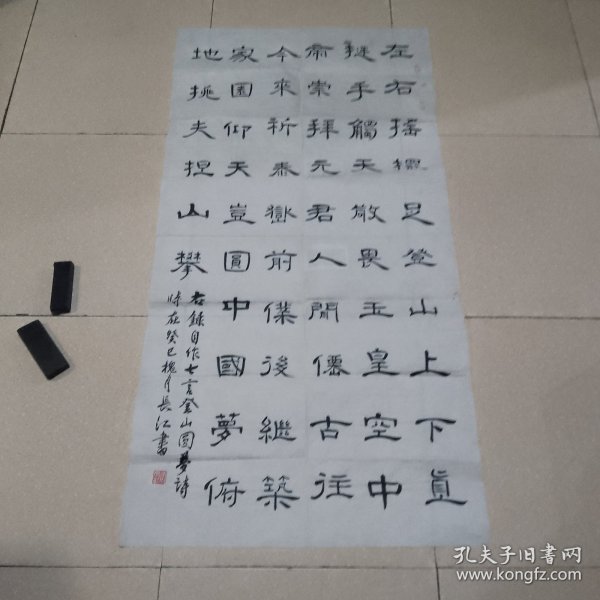 左右搖足登山上下真
手觸天敬畏玉皇空中
崇拜元君人間僊古往
今來祈泰嶽前僕後繼築
家園仰天豈圓中國夢俯
地挑夫捏山攀
右錄自作七言登山圓夢詩
時在癸巳槐月長江書
孔夫子旧书网
www.kongfz.com